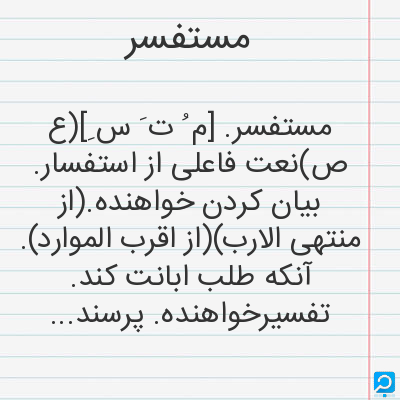 مستفسر
مستفسر. [م ُ ت َ س ِ](ع
ص)نعت فاعلی از استفسار.
بیان کردن خواهنده.(از
منتهی الارب)(از اقرب الموارد).
آنکه طلب ابانت کند.
تفسیرخواهنده. پرسند...